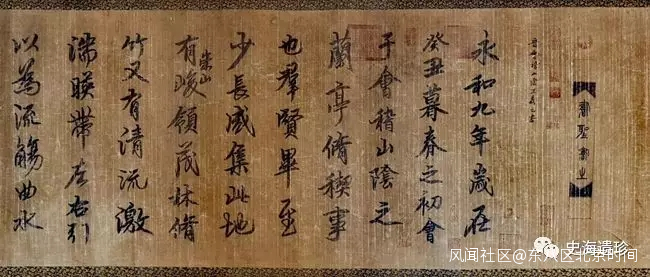 永和九年歲在
癸丑暮春之初會
于會稽山陰之
蘭亭脩禊事
也羣賢畢至
少長咸集此地
有崇山峻領茂林脩
竹又有清流激
湍暎帶左右引
以為流觴曲水
史海遗珍
风闻社区@东八区北京时间